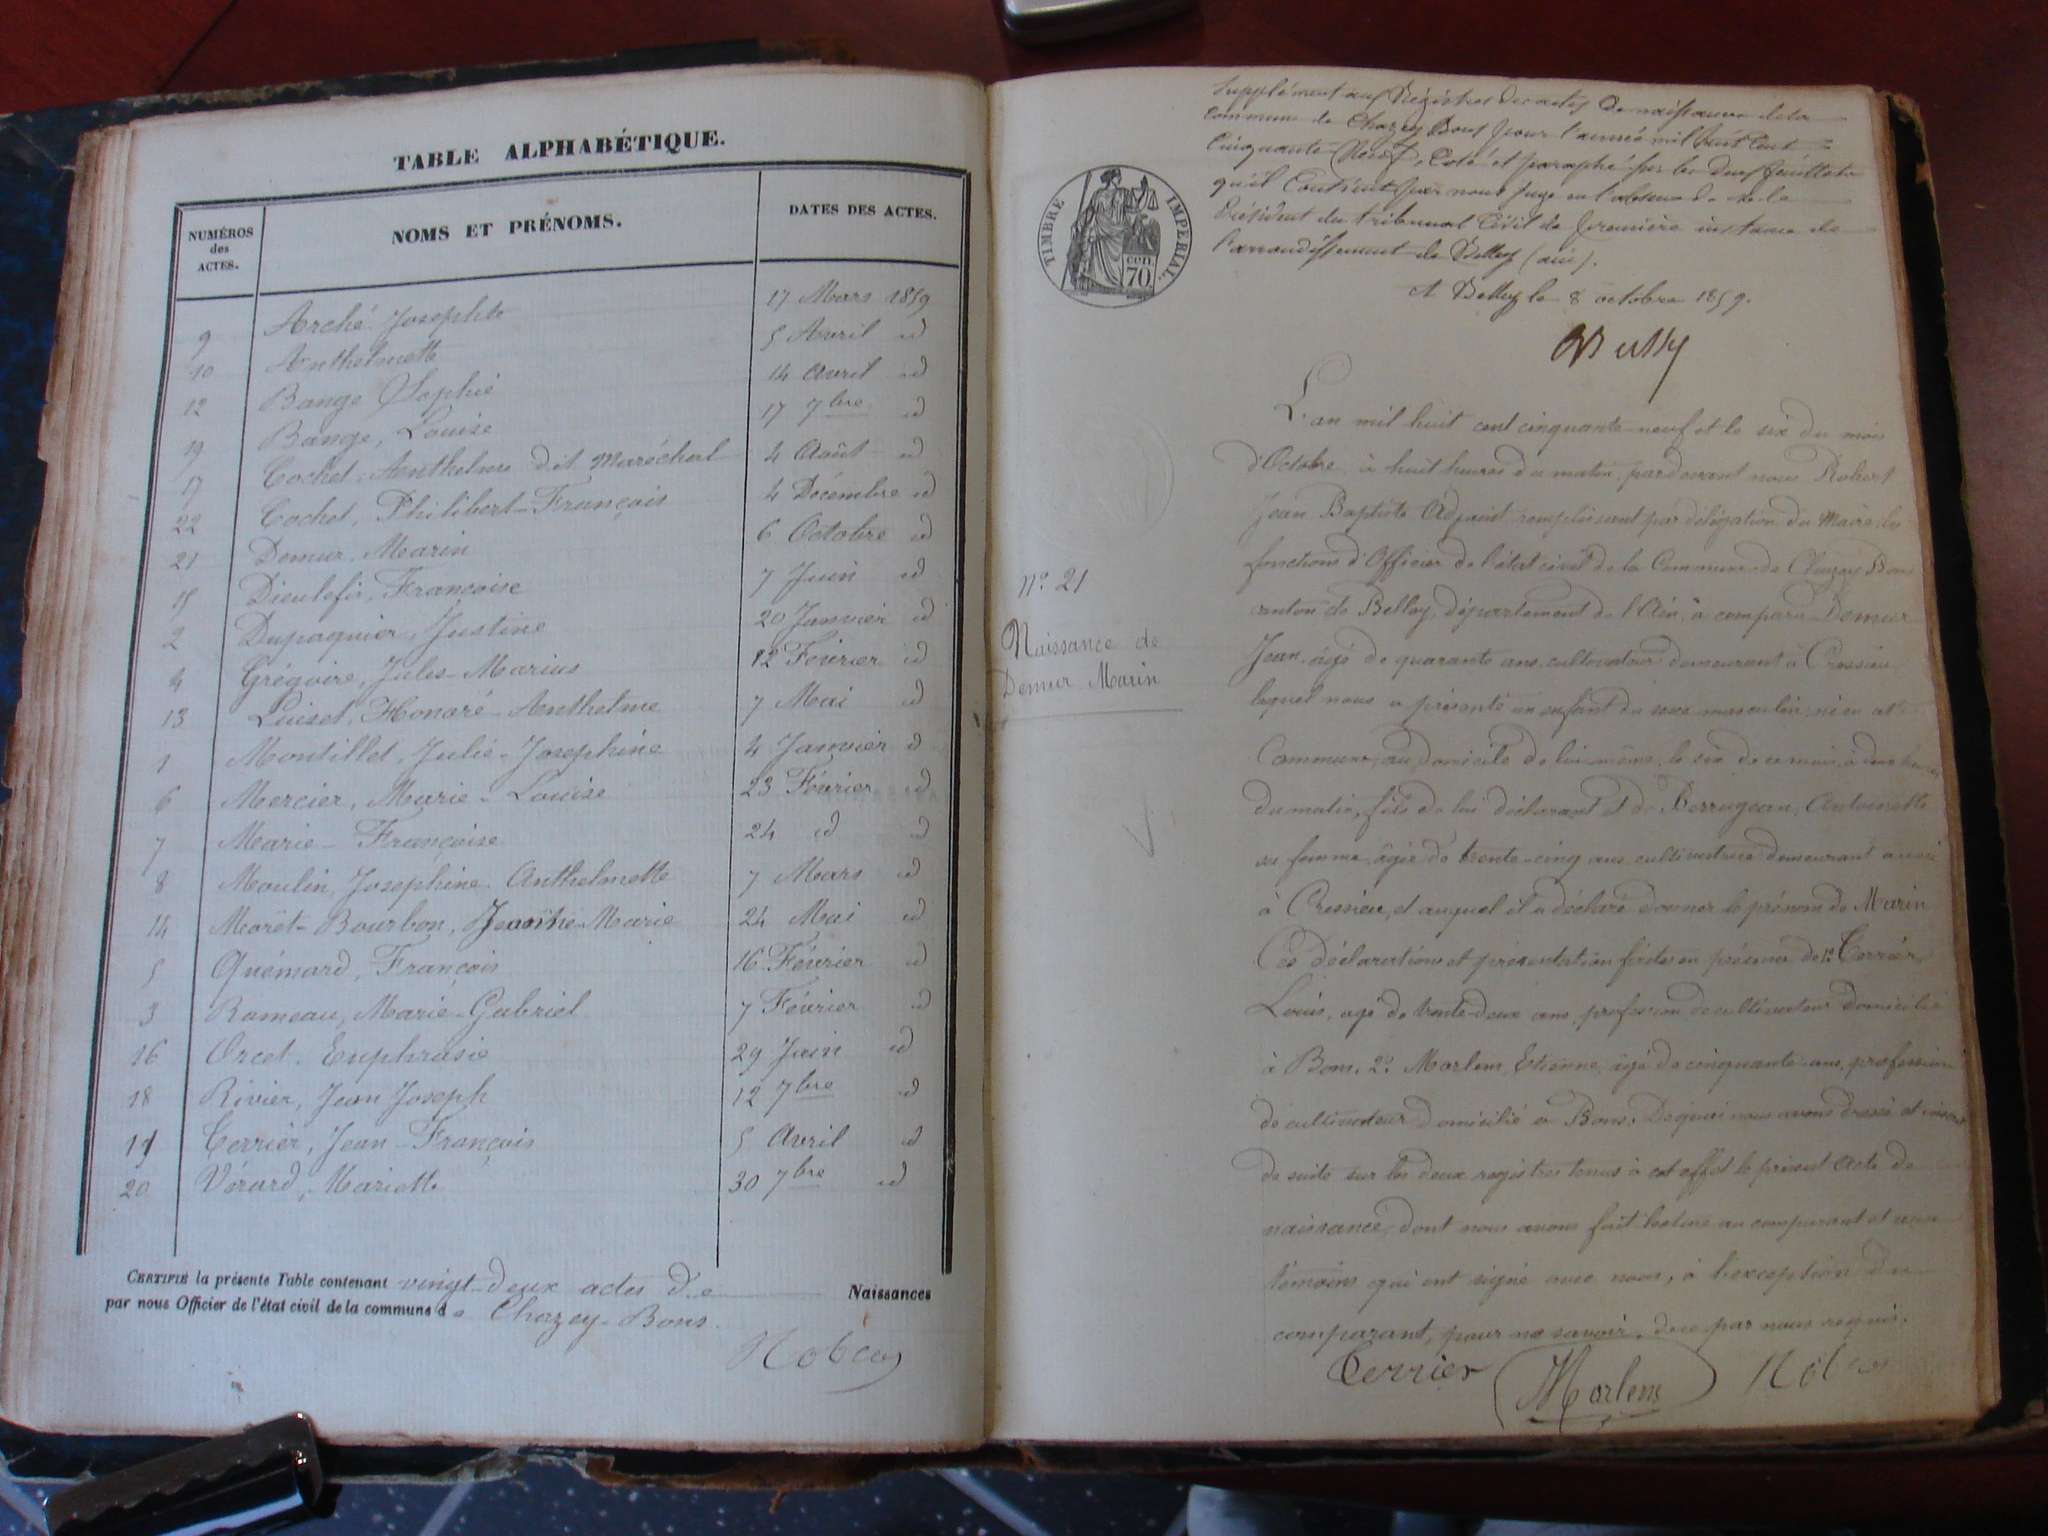 TABLE ALPHABÉTIQUE.
NUMÉROS des ACTES. NOMS ET PRÉNOMS. DATES DES ACTES.
9 Arché Josephte 17 Mars 1859
10 Anthelmette 5 Avril id
12 Bange Sophie 14 Avril id
19 Bange, Louise 17 7bre id
17 Cochet Anthelme dit Maréchal 4 Août id
22 Cochet, Philibert-François 4 Décembre id
21 Demur, Marin 6 Octobre id
15 Dieulefis, Françoise 7 Juin id
2 Dupaquier, Justine 20 Janvier id
4 Grégoire, Jules-Marius 12 Février id
13 Luiset, Honoré-Anthelme 7 Mai id
1 Montillet, Julie-Josephine 4 Janvier id
6 Mercier, Marie-Louise 23 Février id
7 Marie-Françoise 24 id id
8 Moulin, Josephine-Anthelmette 7 Mars id
14 Moret-Bourbon, Jeanne-Marie 24 Mai id
5 Quémard, François 16 Février id
3 Rameau, Marie-Gabriel 7 Février id
16 Orcet, Euphrasie 29 Juin id
18 Rivier, Jean Joseph 12 7bre id
11 Terrier, Jean-François 5 Avril id
20 Vérard, Mariette 30 7bre id
CERTIFIÉ la présente Table contenant vingt-deux actes de Naissances
par nous Officier de l'état civil de la commune de Chazey-Bons.
TIMBRE IMPÉRIAL.
70 cen
Supplément aux Régistres des actes de naissance de la
Commune de Chazey Bons pour l'année mil huit Cent
Cinquante Neuf, Coté et paraphé sur les deux feuillets
qu'il Contient par nous juge en l'absence de
Président du tribunal Civil de première instance de
l'arrondissement de Belley (ain).
A Belley le 8 octobre 1859.
N.o 21
Naissance de
Demur Marin
L'an mil huit cent cinquante-neuf et le six du mois
d'Octobre à huit heures du matin, pardevant nous Robert
Jean Baptiste Adjoint remplissant par délégation du Maire les
fonctions d'Officier de l'état civil de la Commune de Chazey Bons
canton de Belley, département de l'Ain, a comparu Demur
Jean, âgé de quarante ans, cultivateur demeurant à Cressieu
lequel nous a présenté un enfant du sexe masculin, né en cette
Commune, au domicile de lui-même, le six de ce mois, à deux heures
du matin, fils de lui déclarant et de Berrugeau, Antoinette
sa femme, âgée de trente-cinq ans cultivatrice demeurant aussi
à Cressieu, et auquel il a déclaré donner le prénom de Marin
Ces déclarations et présentation faites en présence de 1.o Terrier
Louis, âgé de trente-deux ans, profession de cultivateur domicilié
à Bons, 2.o Morlem, Etienne, âgé de cinquante ans, profession
de cultivateur domicilié à Bons. De quoi nous avons dressé et inscrit
de suite sur les deux registres tenus à cet effet le présent acte de
naissance, dont nous avons fait lecture au comparant et aux
témoins qui ont signé avec nous, à l'exception du
comparant, pour ne savoir, de ce par nous requis.
Terrier Morlem